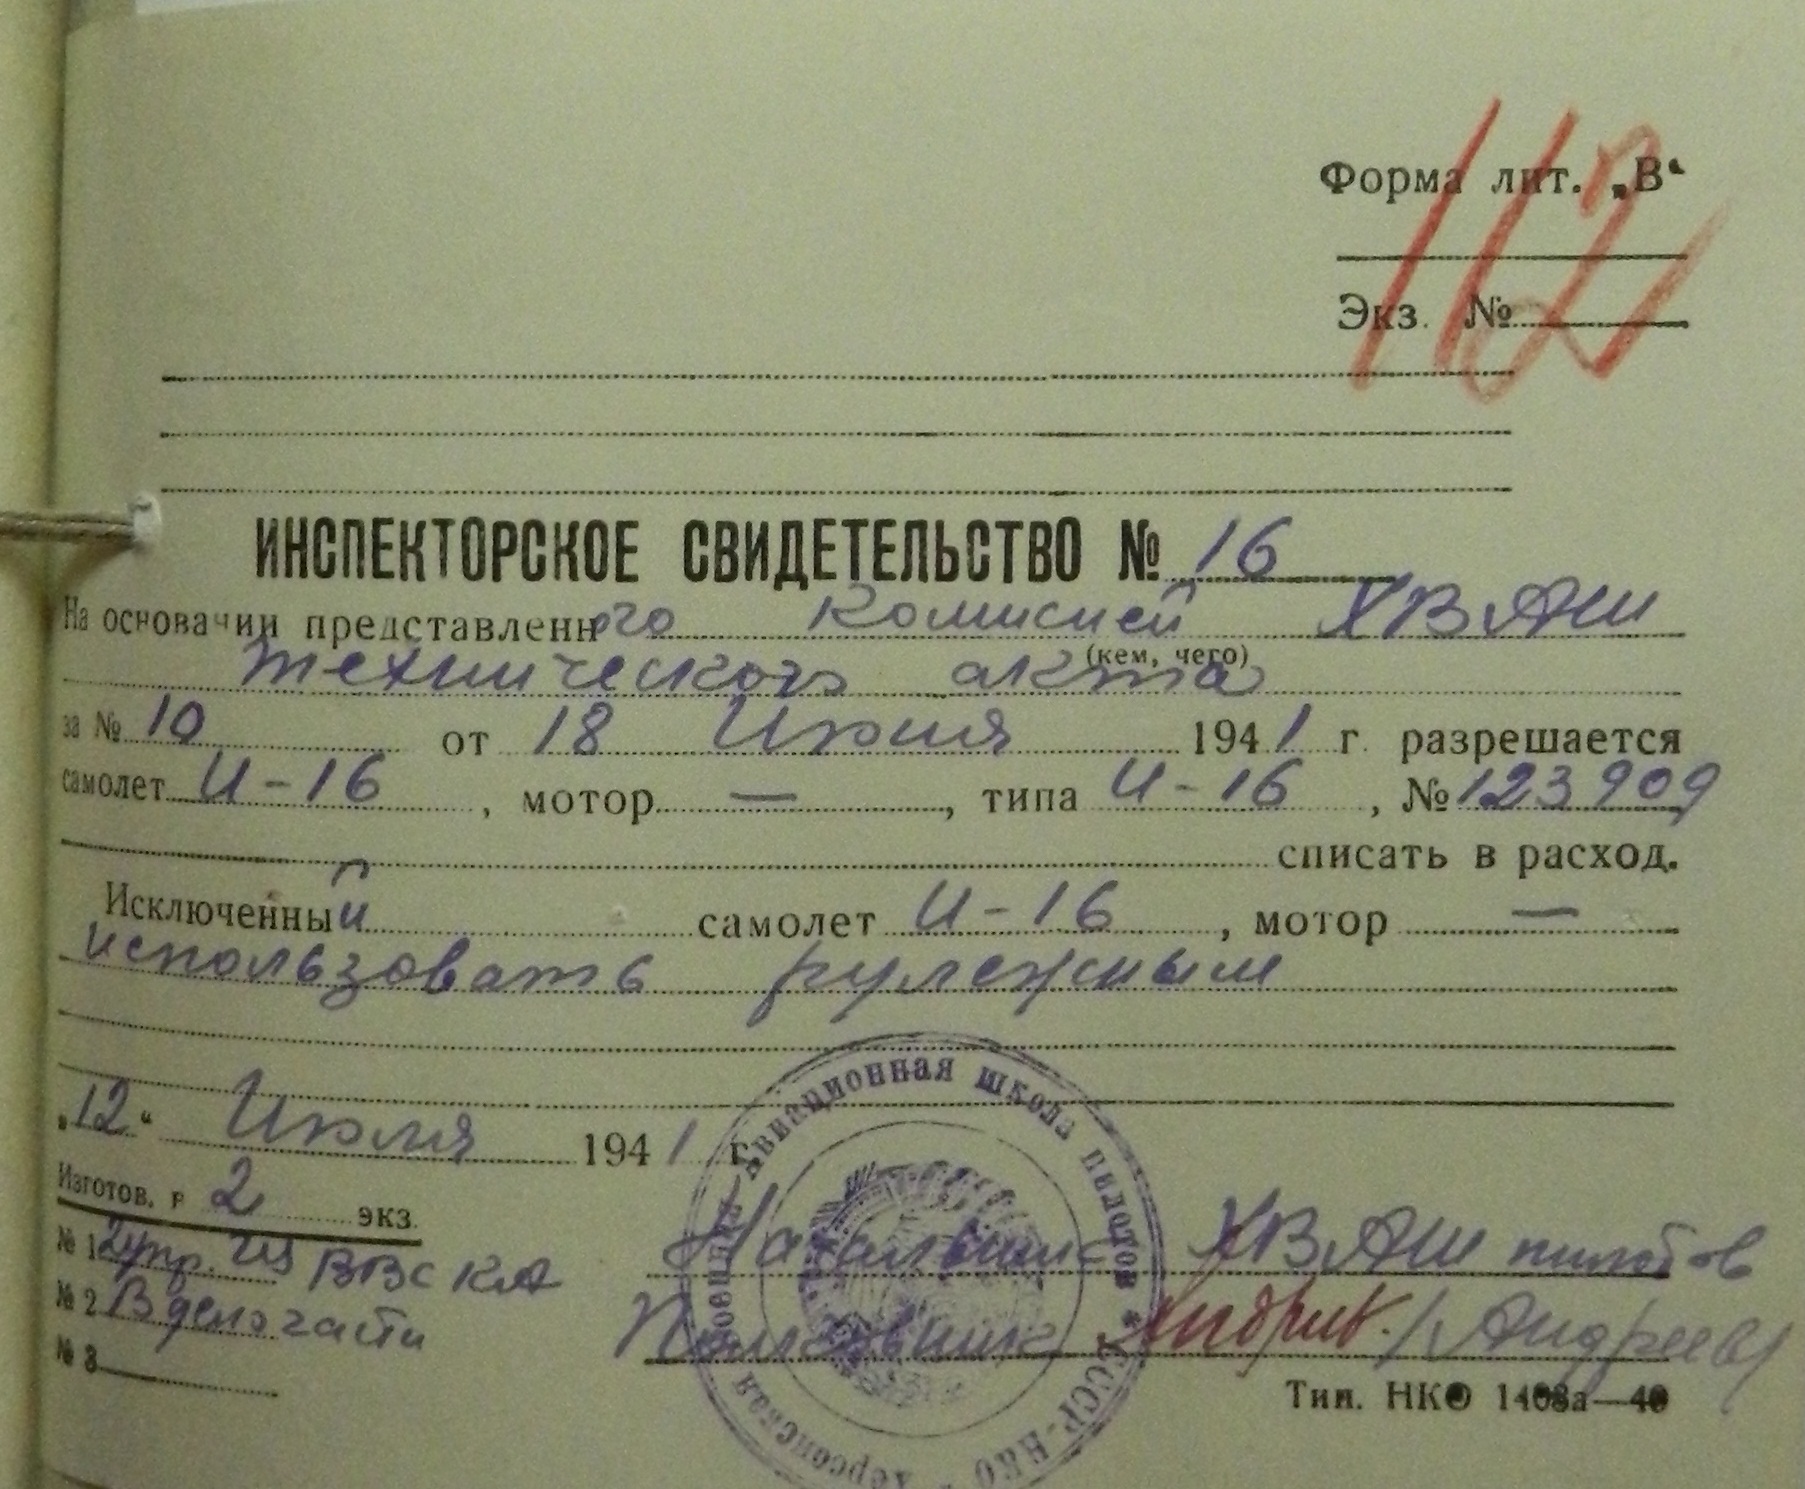 Форма лит. „В“
112
Экз. №
ИНСПЕКТОРСКОЕ СВИДЕТЕЛЬСТВО № 16
На основании представленного комисией ХВАШ
(кем, чего)
технического акта
за № 10 от 18 Июня 1941 г. разрешается
самолет И-16, мотор —, типа И-16, № 123909
списать в расход.
Исключенный самолет И-16, мотор —
использовать рулежным
„12“ Июля 1941 г.
Изготов. в 2 экз.
№ 1 2 упр. ГУ ВВС КА
№ 2 В дело части
№ 3
Начальник ХВАШ пилотов
Полковник /Андреев/
Тип. НКО 1408а—40
Херсонская военная авиационная школа пилотов * СССР-НКО *